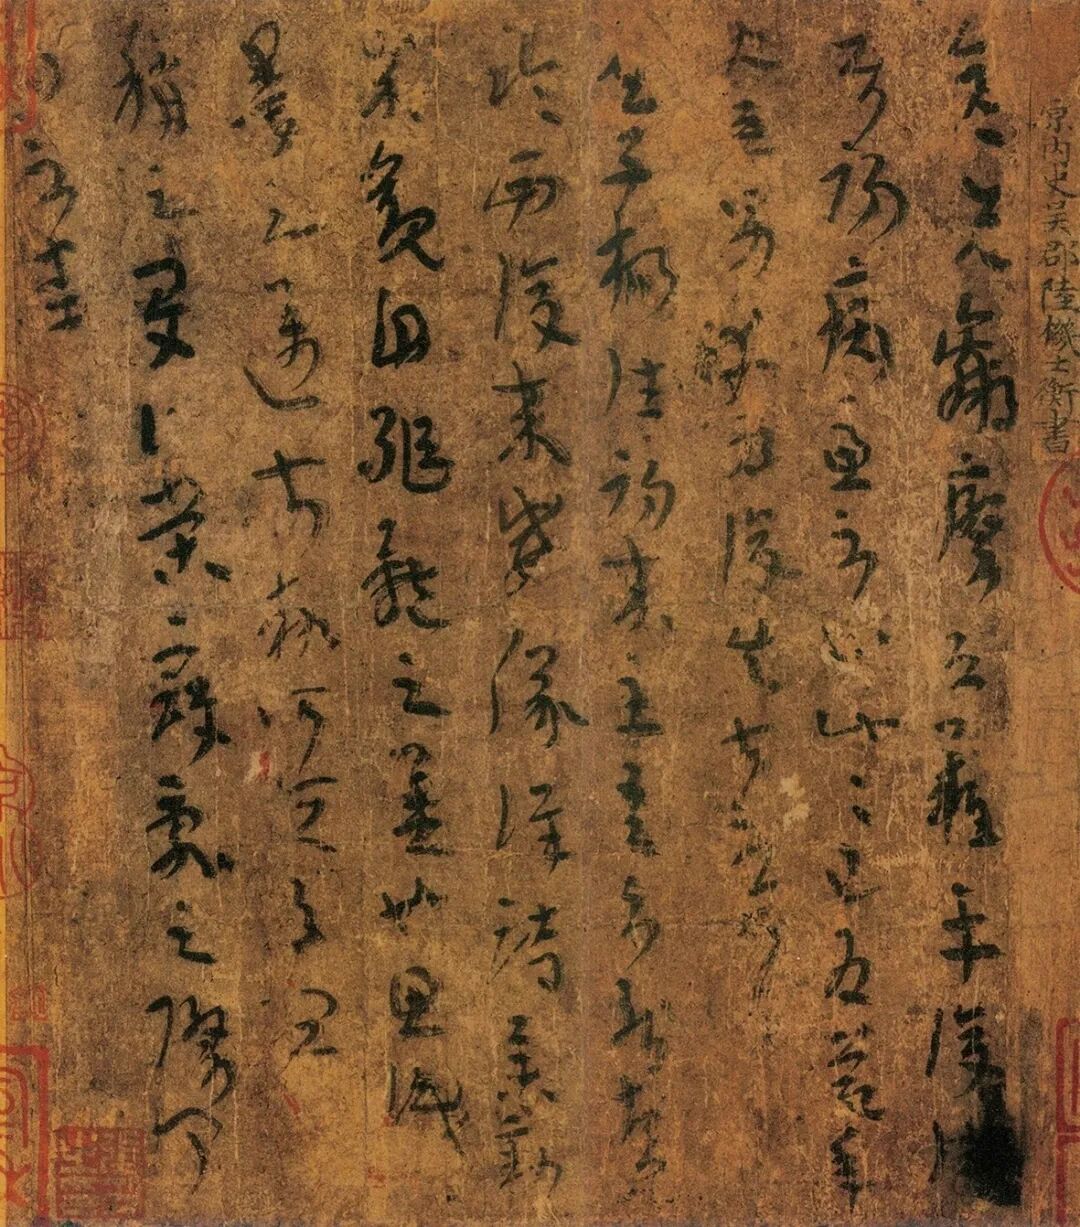 內史吳郡陸機士衡書
彥先羸瘵恐難平復往
屬初病慮不止此此已為慶承
使唯男幸為復失前憂耳
吳子楊往初來主吾不能盡
臨西復來威儀詳跱舉動
成觀自軀體之美也思識
量之邁前執所恆有宜
稱之夏伯榮寇亂之際聞
問不悉